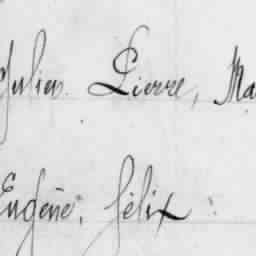 Julien. Pierre, Ma
Eugène, félix.